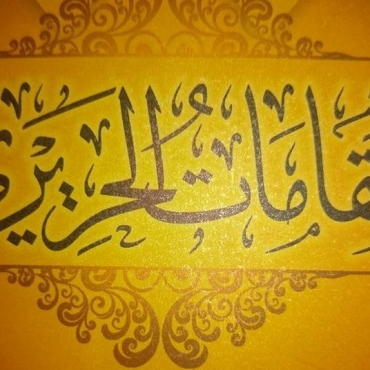 مقامات الحريري